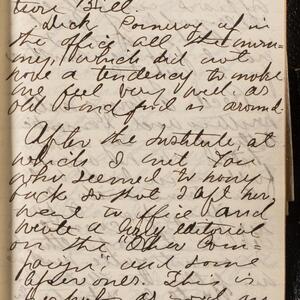 tion Bill.
Dick Pomeroy up in
the office all the morn-
ing, which did not
have a tendency to make
me feel very well as
old Sandford is around.
After the Institute, at
which I met You
who seemed to
back so that I left her
went to office and
wrote a long editorial
on the "Silver Com-
pacyn" and some
after ones. This is